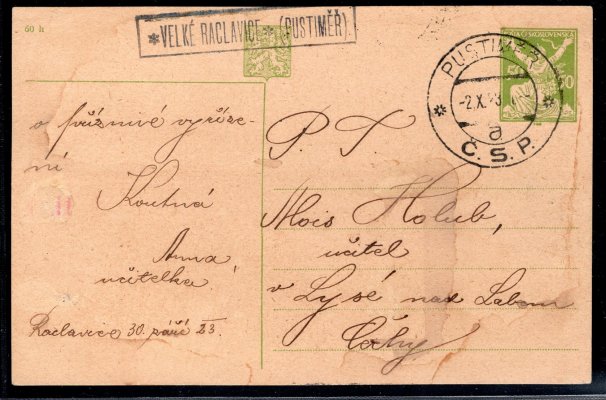 60 h
*VELKÉ RACLAVICE* (PUSTIMĚŘ).
ČESKOSLOVENSKÁ
50
* PUSTIMĚŘ *
-2.X.23
a
Č.S.P.
o příznivé vyříze-
ní
Koutná
Anna
učitelka
Raclavice 30. září 23.
P. T.
Alois Holub,
učitel
v Lysé nad Labem
Čechy